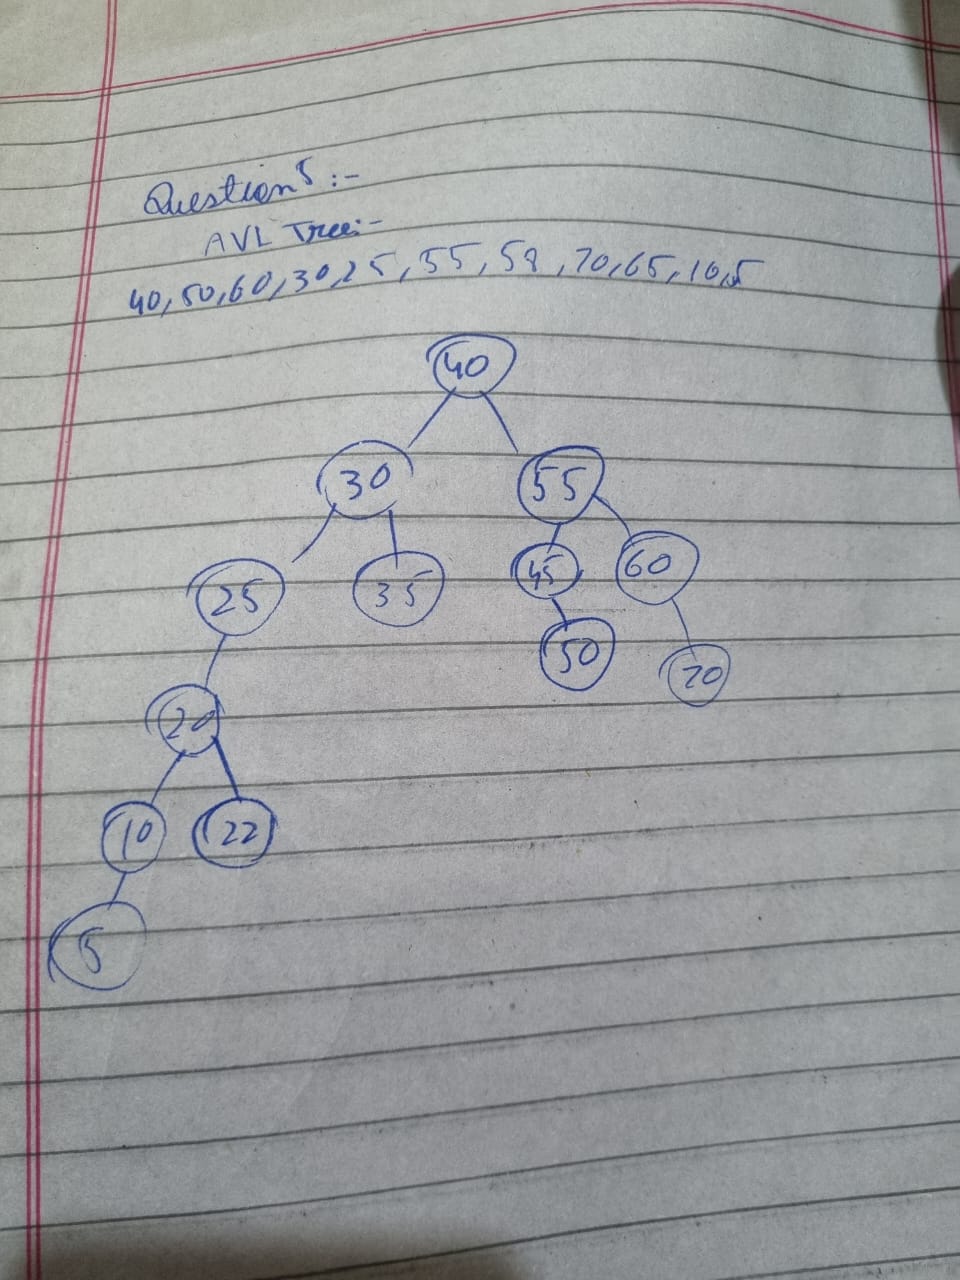 Question 5 :-
AVL Tree:-
40, 50, 60, 30, 25, 55, 58, 70, 65, 10, 5
40
30 55
25 35 45 60
50 70
20
10 22
5